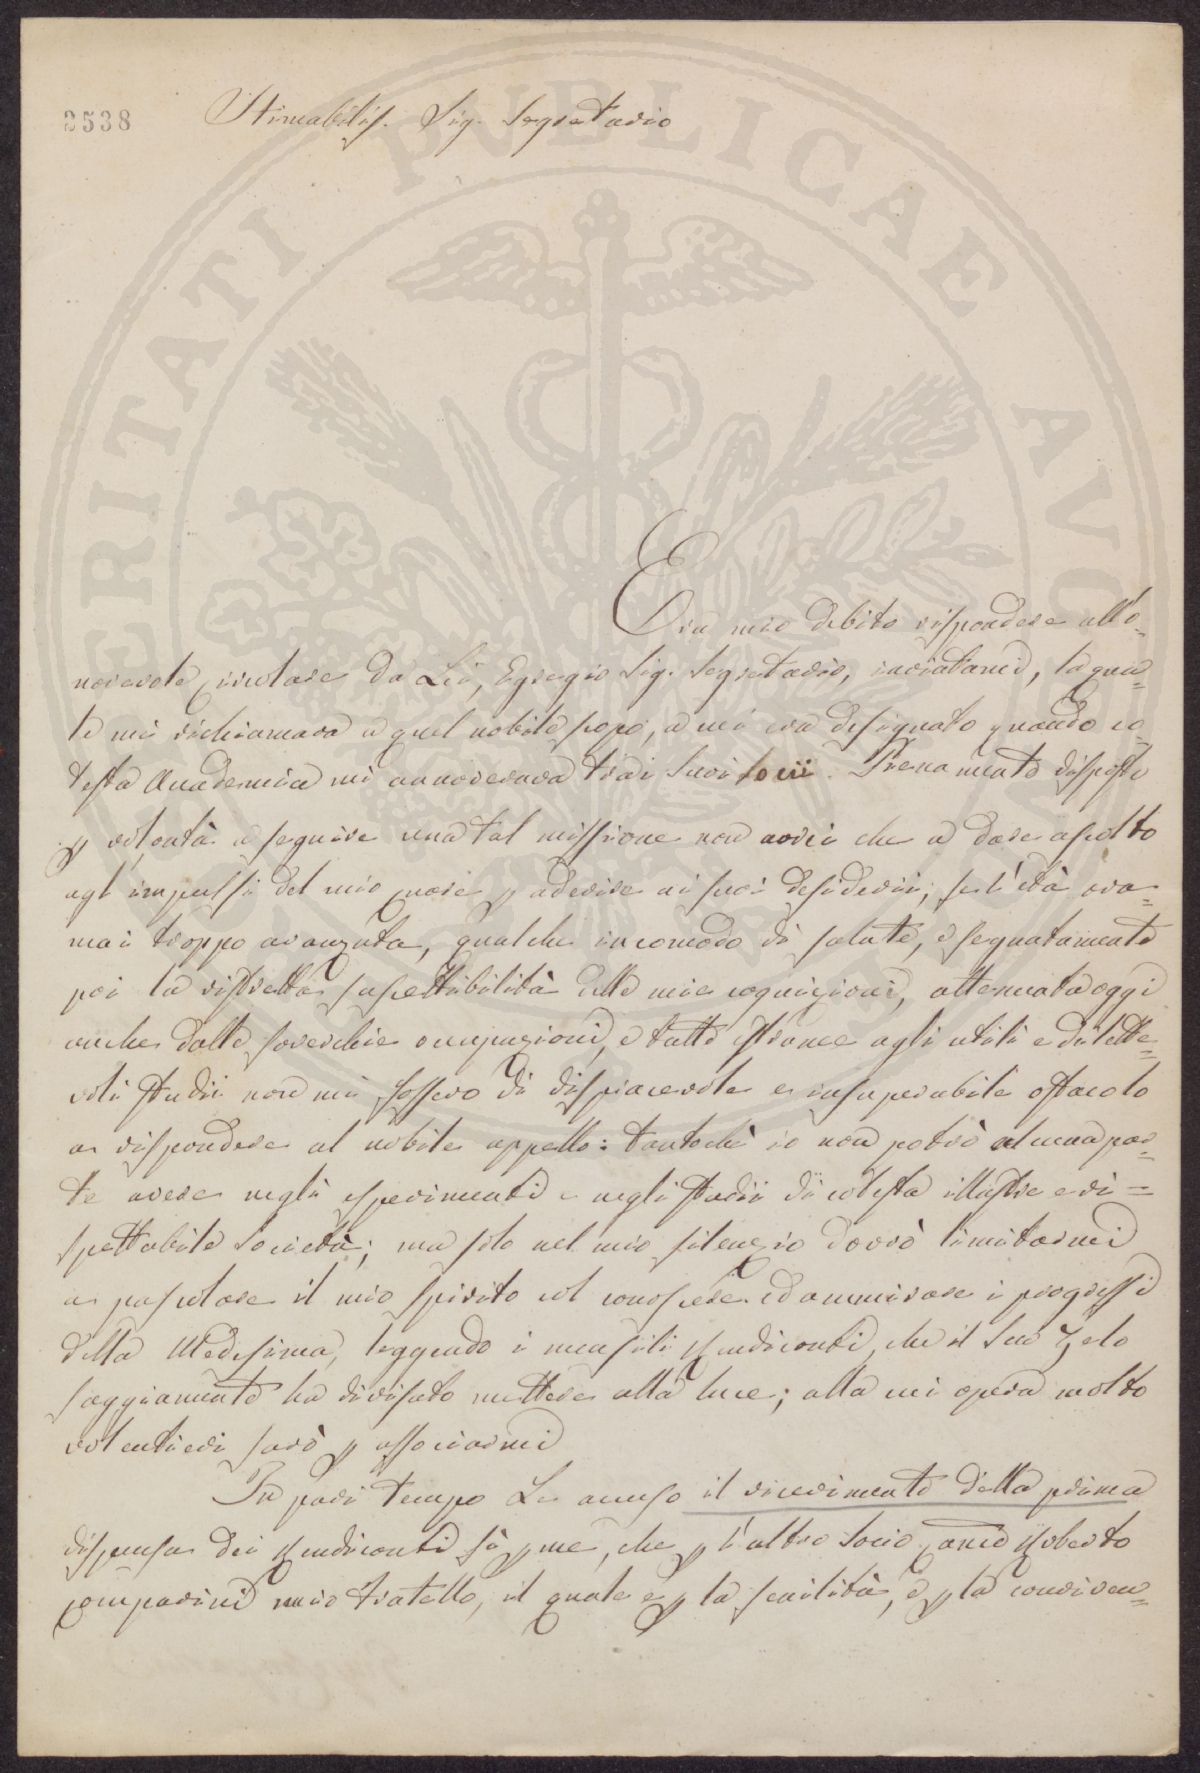 2538
Stimabiliss. Sig. Segretario
Era mio debito rispondere all'o-
norevole circolare da Lei, Egregio Sig. Segretario, inviatami, la qua=
le mi richiamava a quel nobile scopo, a cui era designato quando co-
testa Accademia mi annoverava trai Suoi Socii. Pienamente disposto
p volontà a seguire una tal missione non avrei che a dare ascolto
agl'impulsi del mio cuore p aderire ai suoi desiderii; se l'età ora=
mai troppo avanzata, qualche incomodo di salute, e segnatamente
poi la ristretta suscettibilità delle mie cognizioni, attenuata oggi
anche dalle soverchie occupazioni, e tutte estranee agli utili e dilette=
voli studii non mi fossero di dispiacevole e insuperabile ostacolo
a rispondere al nobile appello: tantochè io non potrò alcuna par=
te avere negli esperimenti e negli studii di cotesta illustre e ri=
spettabile Società; ma solo nel mio silenzio dovrò limitarmi
a pascolare il mio spirito col conoscere ed ammirare i progressi
della Medesima, leggendo i mensili Rendiconti, che il Suo Zelo
saggiamente ha divisato mettere alla luce; alla cui opera molto
volentieri sarò p associarmi
In pari tempo Le accuso il ricevimento della prima
dispensa dei Rendiconti sì p me, che p l'altro Socio Canco Roberto
Comparini mio fratello, il quale e p la senilità, e p la conviven=